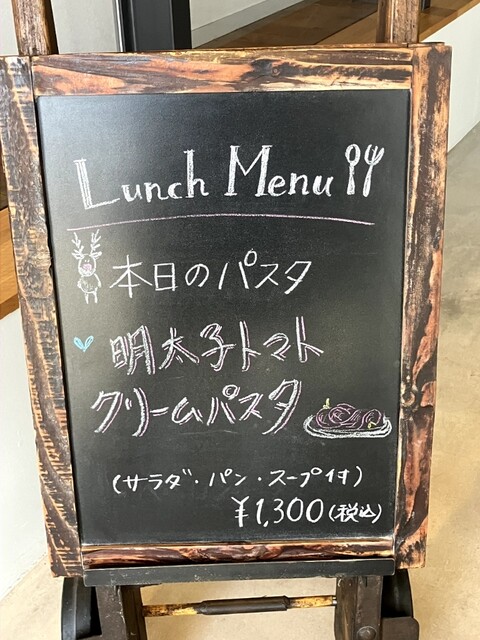 Lunch Menu
本日のパスタ
明太子トマト
クリームパスタ
(サラダ・パン・スープ付)
¥1,300(税込)